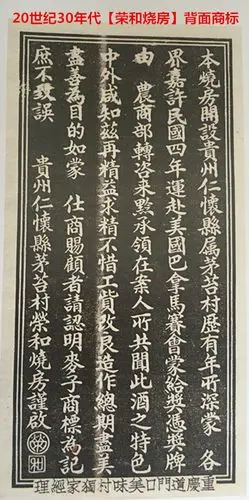 20世纪30年代【荣和烧房】背面商标
本燒房開設貴州仁懷縣属茅苔村歷有年所深蒙 各
界嘉許民國四年運赴美國巴拿馬賽會蒙給獎憑獎牌
由 農商部轉咨來黔承領在案人所共聞此酒之特色
中外咸知茲再精益求精不惜工貨改良造作總期盡美
盡善為目的如蒙 仕商賜顧者請認明麥子商標為記
庶不致誤 貴州仁懷縣茅苔村榮和燒房謹啟
重慶道門口美味村獨家經理